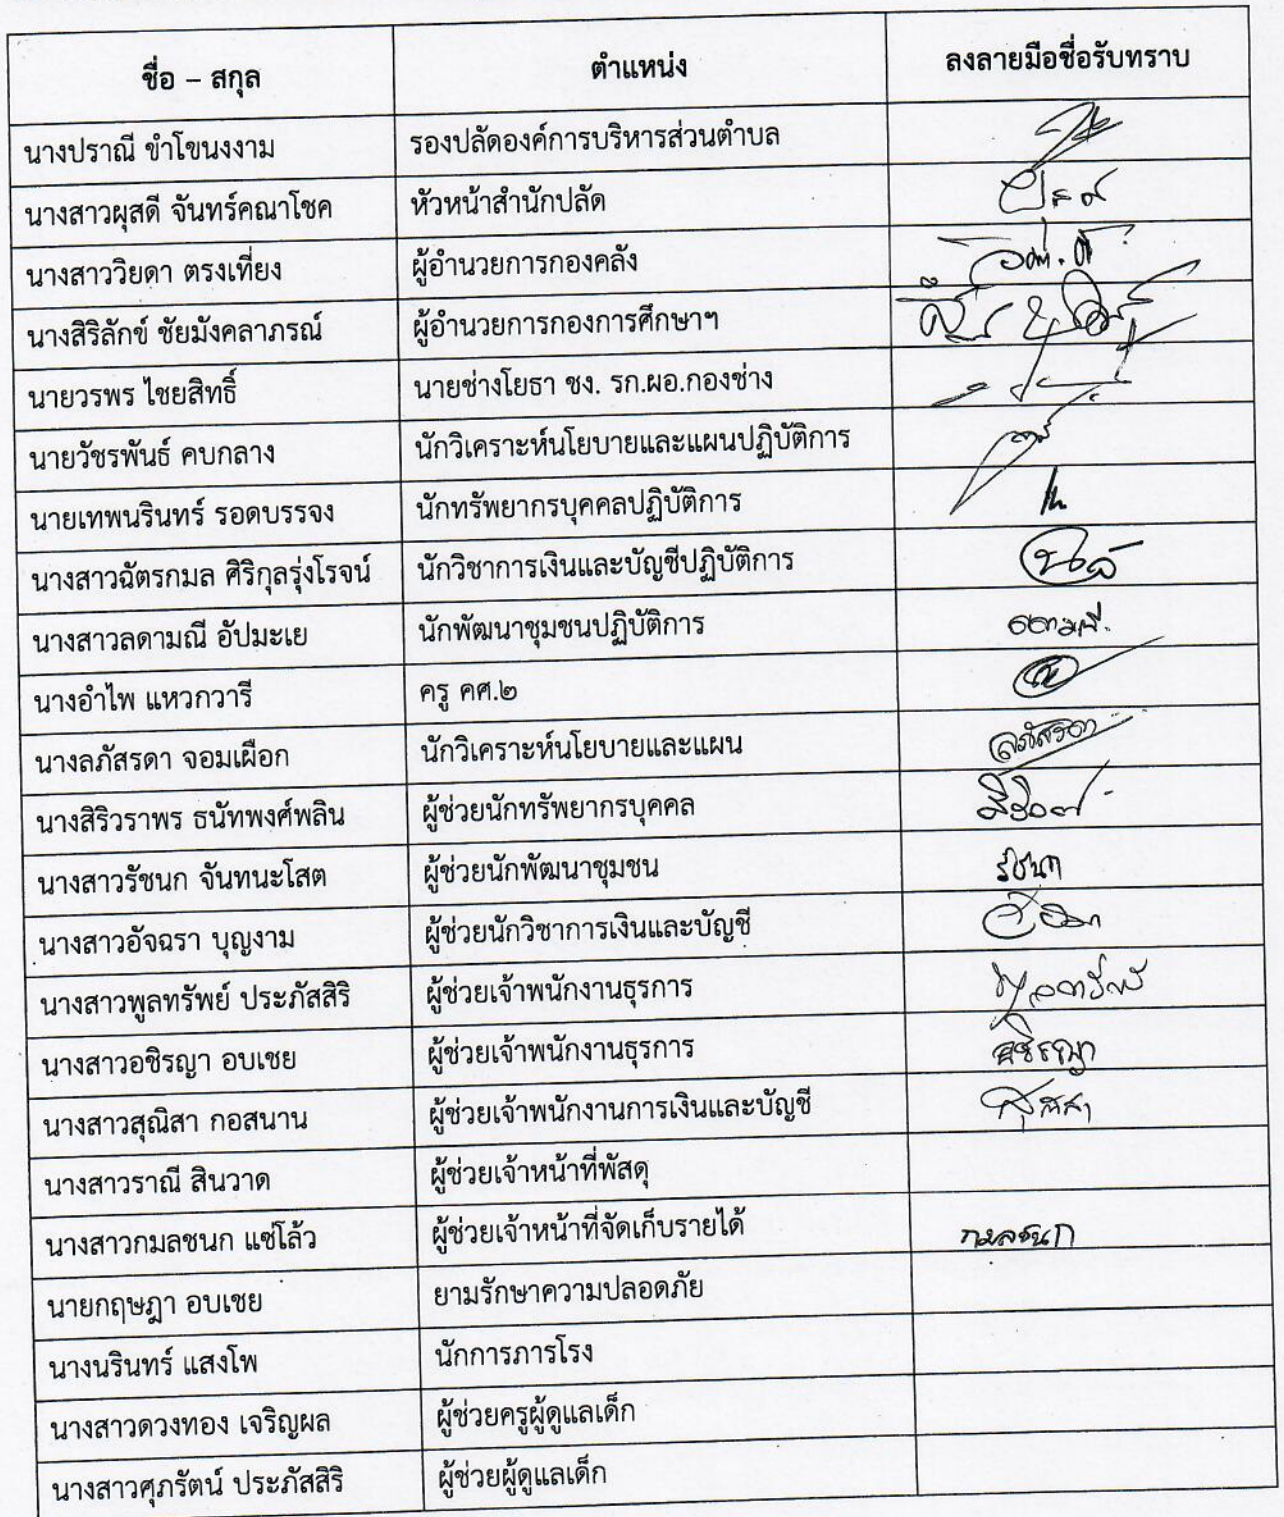 ชื่อ – สกุล ตำแหน่ง ลงลายมือชื่อรับทราบ
นางปราณี ขำโขนงงาม รองปลัดองค์การบริหารส่วนตำบล
นางสาวผุสดี จันทร์คณาโชค หัวหน้าสำนักปลัด
นางสาววิยดา ตรงเที่ยง ผู้อำนวยการกองคลัง
นางสิริลักข์ ชัยมังคลาภรณ์ ผู้อำนวยการกองการศึกษาฯ
นายวรพร ไชยสิทธิ์ นายช่างโยธา ชง. รก.ผอ.กองช่าง
นายวัชรพันธ์ คบกลาง นักวิเคราะห์นโยบายและแผนปฏิบัติการ
นายเทพนรินทร์ รอดบรรจง นักทรัพยากรบุคคลปฏิบัติการ
นางสาวฉัตรกมล ศิริกุลรุ่งโรจน์ นักวิชาการเงินและบัญชีปฏิบัติการ
นางสาวลดามณี อัปมะเย นักพัฒนาชุมชนปฏิบัติการ ลดามณี.
นางอำไพ แหวกวารี ครู คศ.๒
นางลภัสรดา จอมเผือก นักวิเคราะห์นโยบายและแผน ลภัสรดา
นางสิริวราพร ธนัทพงศ์พลิน ผู้ช่วยนักทรัพยากรบุคคล
นางสาวรัชนก จันทนะโสต ผู้ช่วยนักพัฒนาชุมชน รัชนก
นางสาวอัจฉรา บุญงาม ผู้ช่วยนักวิชาการเงินและบัญชี
นางสาวพูลทรัพย์ ประภัสสิริ ผู้ช่วยเจ้าพนักงานธุรการ
นางสาวอชิรญา อบเชย ผู้ช่วยเจ้าพนักงานธุรการ อชิรญา
นางสาวสุณิสา กอสนาน ผู้ช่วยเจ้าพนักงานการเงินและบัญชี
นางสาวราณี สินวาด ผู้ช่วยเจ้าหน้าที่พัสดุ
นางสาวกมลชนก แซ่โล้ว ผู้ช่วยเจ้าหน้าที่จัดเก็บรายได้ กมลชนก
นายกฤษฎา อบเชย ยามรักษาความปลอดภัย
นางนรินทร์ แสงโพ นักการภารโรง
นางสาวดวงทอง เจริญผล ผู้ช่วยครูผู้ดูแลเด็ก
นางสาวศุภรัตน์ ประภัสสิริ ผู้ช่วยผู้ดูแลเด็ก